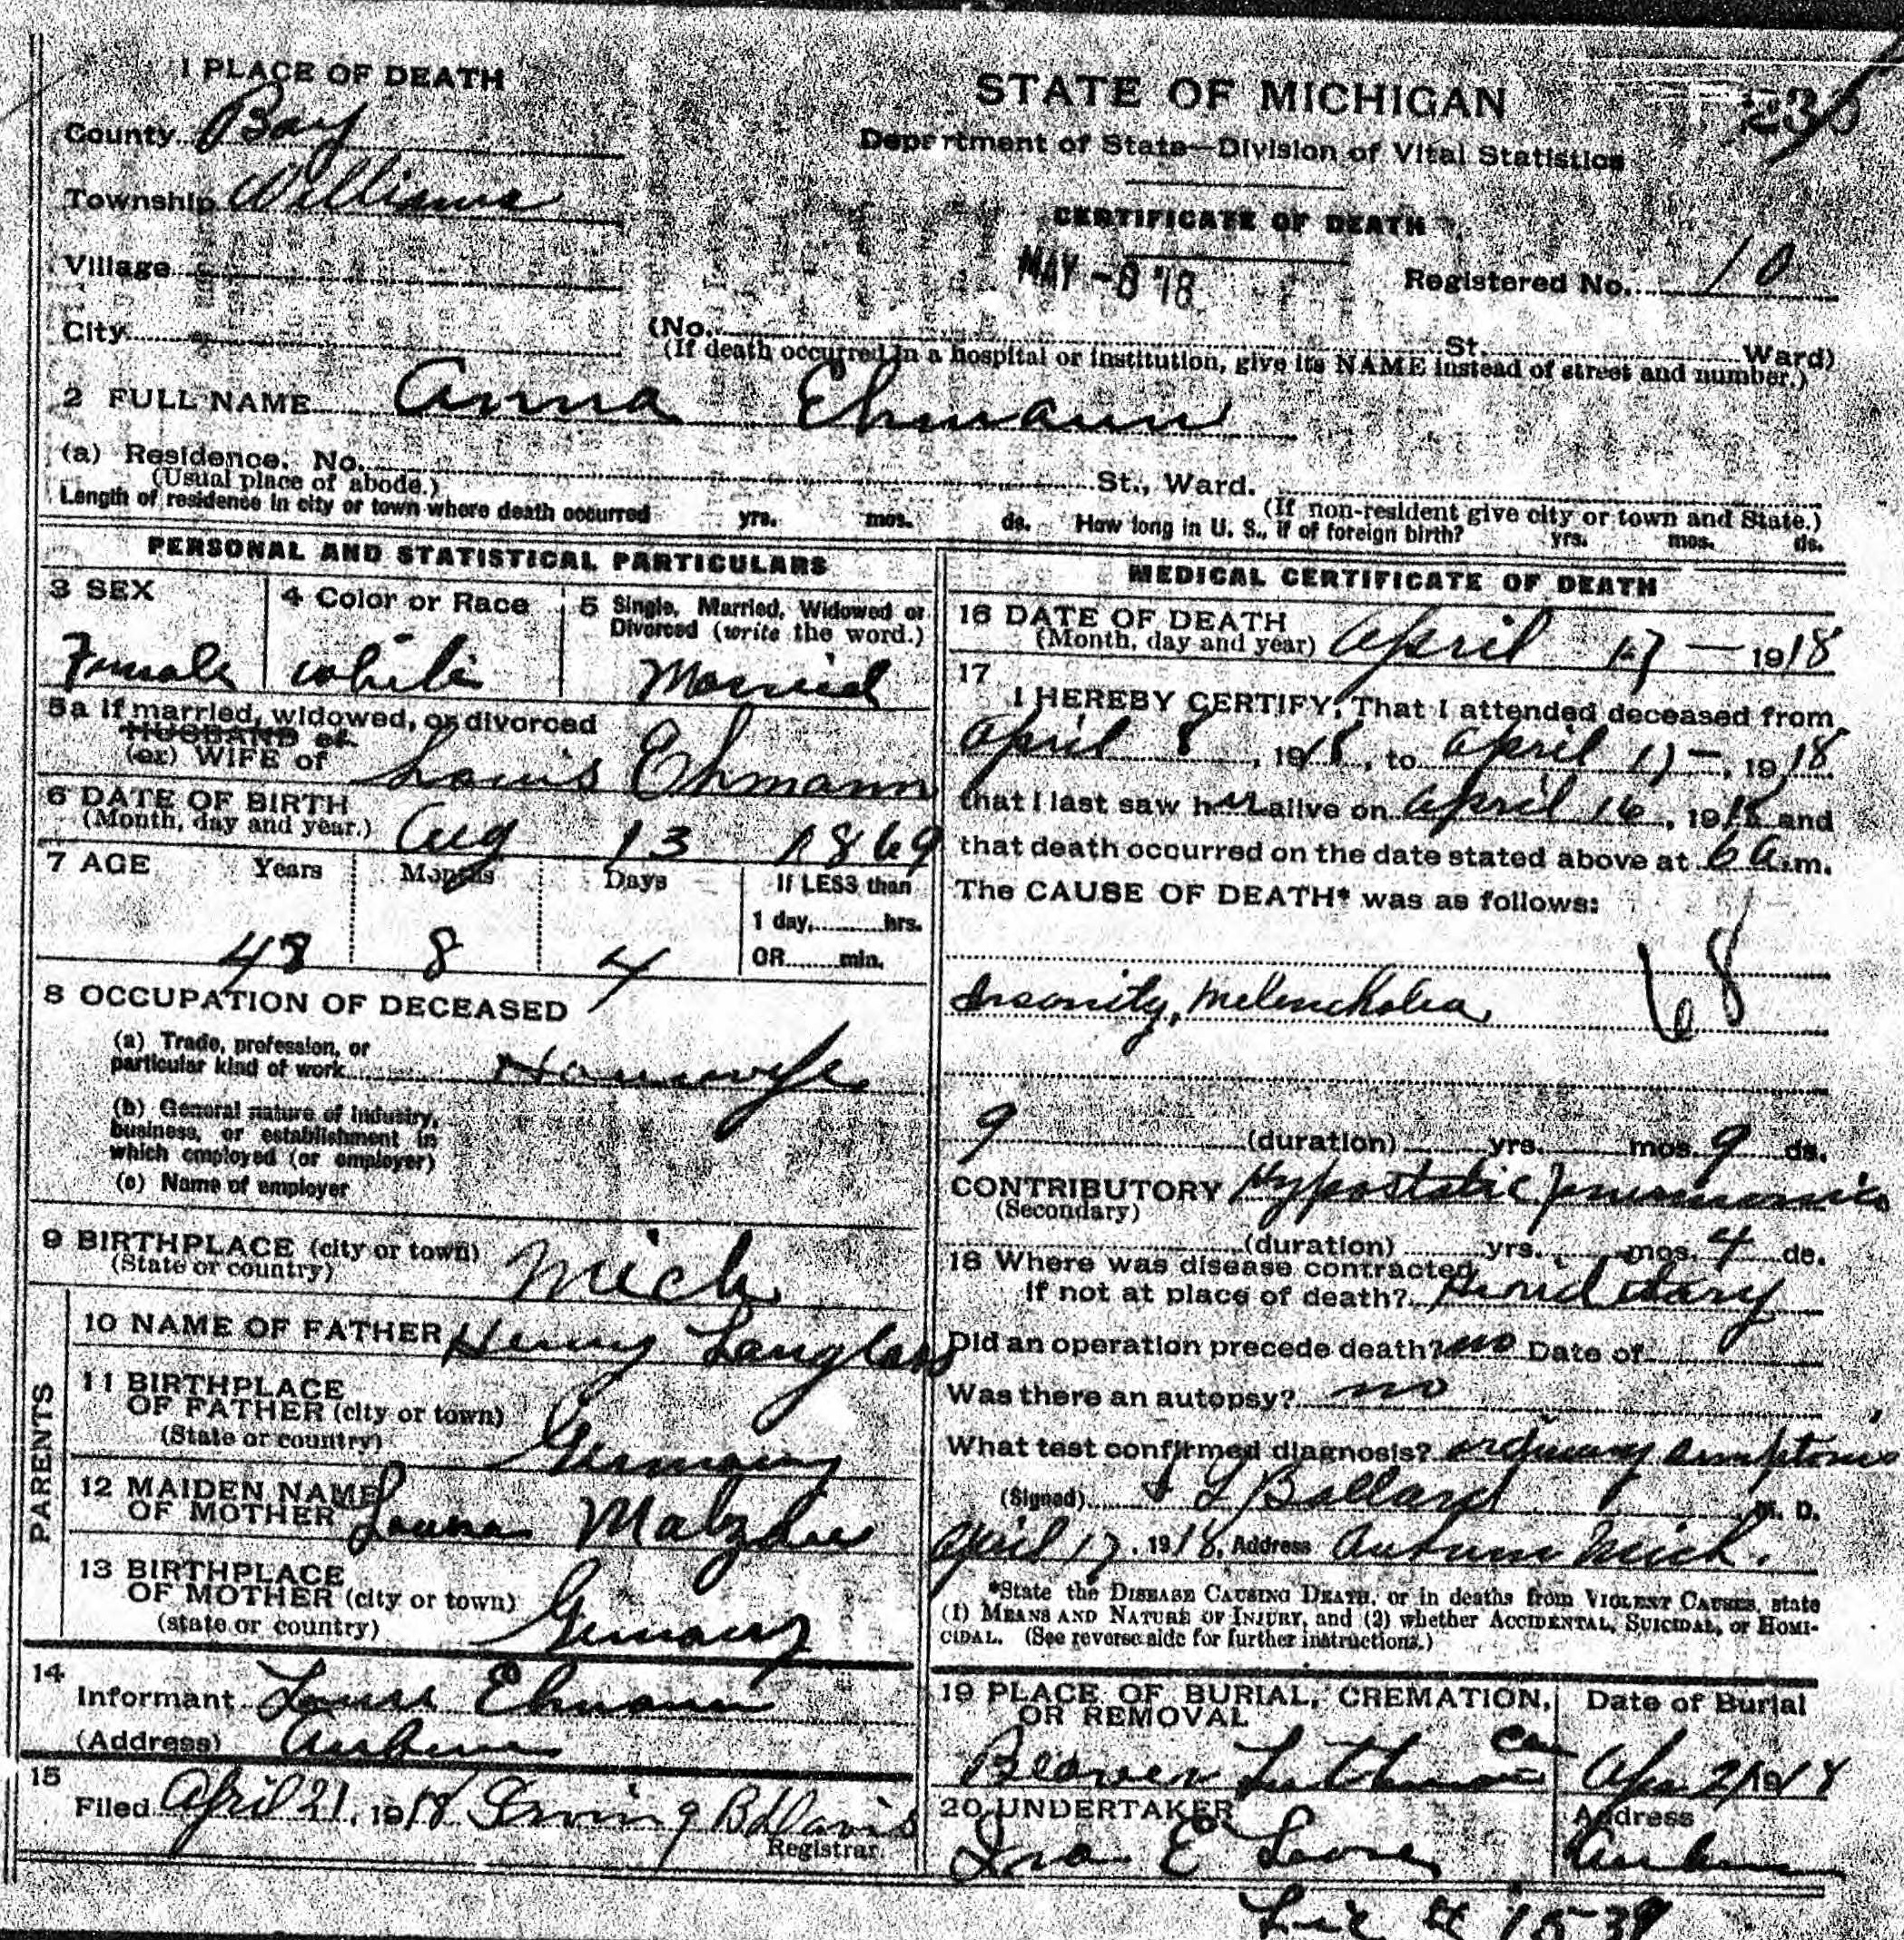 1 PLACE OF DEATH
County Bay
Township Williams
Village
City
STATE OF MICHIGAN
Department of State—Division of Vital Statistics
CERTIFICATE OF DEATH
MAY -8 '18
Registered No. 10
(No. St. Ward)
(If death occurred in a hospital or institution, give its NAME instead of street and number.)
2 FULL NAME Anna Ehmann
(a) Residence. No. St., Ward.
(Usual place of abode.) (If non-resident give city or town and State.)
Length of residence in city or town where death occurred yrs. mos. ds. How long in U. S., if of foreign birth? yrs. mos. ds.
PERSONAL AND STATISTICAL PARTICULARS
3 SEX
Female
4 Color or Race
white
5 Single, Married, Widowed or
Divorced (write the word.)
Married
5a If married, widowed, or divorced
HUSBAND of
(or) WIFE of Louis Ehmann
6 DATE OF BIRTH
(Month, day and year.) Aug 13 1869
7 AGE Years Months Days If LESS than
1 day, hrs.
OR min.
48 8 4
8 OCCUPATION OF DECEASED
(a) Trade, profession, or
particular kind of work Housewife
(b) General nature of industry,
business, or establishment in
which employed (or employer)
(c) Name of employer
9 BIRTHPLACE (city or town)
(State or country) Mich
PARENTS
10 NAME OF FATHER Henry Langlass
11 BIRTHPLACE
OF FATHER (city or town)
(State or country) Germany
12 MAIDEN NAME
OF MOTHER Louisa
13 BIRTHPLACE
OF MOTHER (city or town)
(state or country) Germany
14
Informant Louis Ehmann
(Address) Auburn
15
Filed April 21, 1918 Irving B Davis
Registrar.
MEDICAL CERTIFICATE OF DEATH
16 DATE OF DEATH
(Month, day and year) April 17 — 1918
17
I HEREBY CERTIFY, That I attended deceased from
April 8, 1918, to April 17 —, 1918
that I last saw her alive on April 16, 1918 and
that death occurred on the date stated above at 6 a.m.
The CAUSE OF DEATH* was as follows:
68
Insanity, Melencholia
9 (duration) yrs. mos. 9 ds.
CONTRIBUTORY Hypostatic pneumonia
(Secondary)
(duration) yrs. mos. 4 ds.
18 Where was disease contracted
if not at place of death?
Did an operation precede death? no Date of
Was there an autopsy? no
What test confirmed diagnosis? ordinary
(Signed) Ballard M. D.
April 17, 1918, Address Auburn Mich.
*State the DISEASE CAUSING DEATH, or in deaths from VIOLENT CAUSES, state
(1) MEANS AND NATURE OF INJURY, and (2) whether ACCIDENTAL, SUICIDAL, or HOMI-
CIDAL. (See reverse side for further instructions.)
19 PLACE OF BURIAL, CREMATION,
OR REMOVAL
Beaver Lutheran Cem
Date of Burial
Apr 21 1918
20 UNDERTAKER
Ira E
Address
Auburn
Lic # 1539